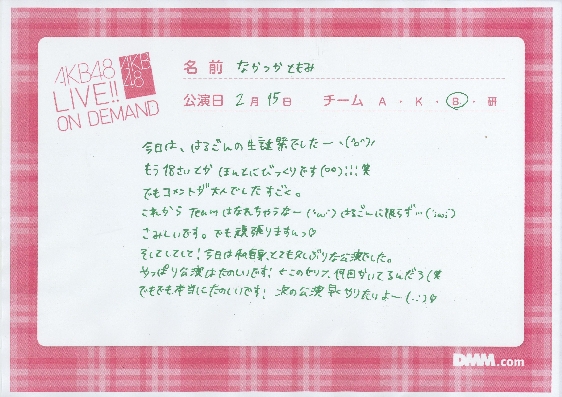 AKB48
LIVE!!
ON DEMAND
AKB
48
名前 なかつかともみ
公演日 2月15日 チーム A・K・B・研
今日は、はるごんの生誕祭でしたー、(^o^)ノ
もう18さいとか ほんとにびっくりです(°o°)!!!笑
でもコメントが大人でしたすごく。
これから teamはなれちゃうなー('ω')はるごんに限らず…(;ω;)
さみしいです。でも頑張りますんっ
そしてしてして!今日は私自身、とても久しぶりな公演でした。
やっぱり公演はたのしいです!とこのセリフ、何回かいてるんだろ(笑
でもでも、本当にたのしいです!次の公演早くやりたいよー(..)
DMM.com